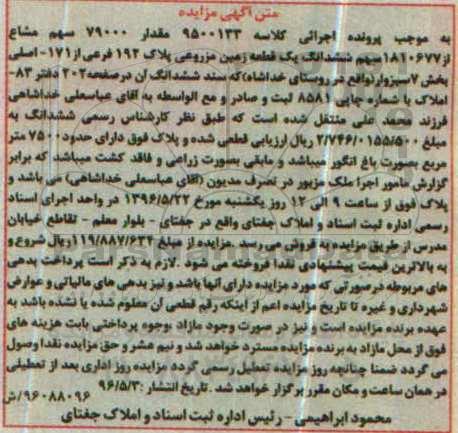 متن آگهی مزایده
به موجب پرونده اجرائی کلاسه ۹۵۰۰۱۳۳ مقدار ۷۹۰۰۰ سهم مشاع
از ۱۸۱۰۶۷۷ سهم ششدانگ یک قطعه زمین مزروعی پلاک ۱۹۲ فرعی از ۱۷۱- اصلی
بخش ۷ سبزوار (واقع در روستای خداشاه) که سند ششدانگ آن در صفحه ۲۰۲ دفتر ۸۳-
املاک با شماره چاپی ۸۵۸۱ ثبت و صادر و مع الواسطه به آقای عباسعلی خداشاهی
فرزند محمد علی منتقل شده است که طبق نظر کارشناس رسمی ششدانگ به
مبلغ ۲/۷۴۶/۰۱۵۵/۵۰۰ ریال ارزیابی قطعی شده و پلاک فوق دارای حدود ۷۵۰۰ متر
مربع بصورت باغ انگور میباشد و مابقی بصورت زراعی و فاقد کشت میباشد که برابر
گزارش مامور اجرا ملک مزبور در تصرف مدیون (آقای عباسعلی خداشاهی) می باشد و
پلاک فوق از ساعت ۹ الی ۱۲ روز یکشنبه مورخ ۱۳۹۶/۵/۲۲ در واحد اجرای اسناد
رسمی اداره ثبت اسناد و املاک جغتای واقع در جغتای - بلوار معلم - تقاطع خیابان
مدرس از طریق مزایده به فروش می رسد .مزایده از مبلغ ۱۱۹/۸۸۷/۶۳۴ریال شروع و
به بالاترین قیمت پیشنهادی نقدا فروخته می شود .لازم به ذکر است پرداخت بدهی
های مربوطه در صورتی که مورد مزایده دارای آنها باشد و نیز بدهی های مالیاتی و عوارض
شهرداری و غیره تا تاریخ مزایده اعم از اینکه رقم قطعی آن معلوم شده یا نشده باشد به
عهده برنده مزایده است و نیز در صورت وجود مازاد ،وجوه پرداختی بابت هزینه های
فوق از محل مازاد به برنده مزایده مسترد خواهد شد و نیم عشر و حق مزایده نقدا وصول
می گردد ضمنا چنانچه روز مزایده تعطیل رسمی گردد مزایده روز اداری بعد از تعطیلی
در همان ساعت و مکان مقرر برگزار خواهد شد . تاریخ انتشار :۹۶/۵/۳
۹۶۰۸۸۰۹۶/ش
محمود ابراهیمی - رئیس اداره ثبت اسناد و املاک جغتای